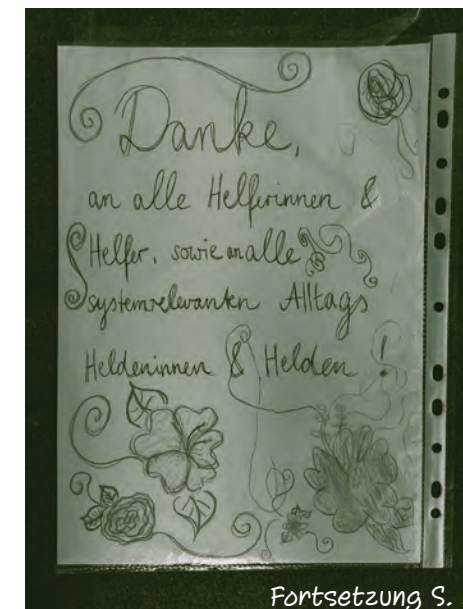 Danke,
an alle Helferinnen &
Helfer, sowie an alle
systemrelevanten Alltags
Heldeninnen & Helden !
Fortsetzung S.